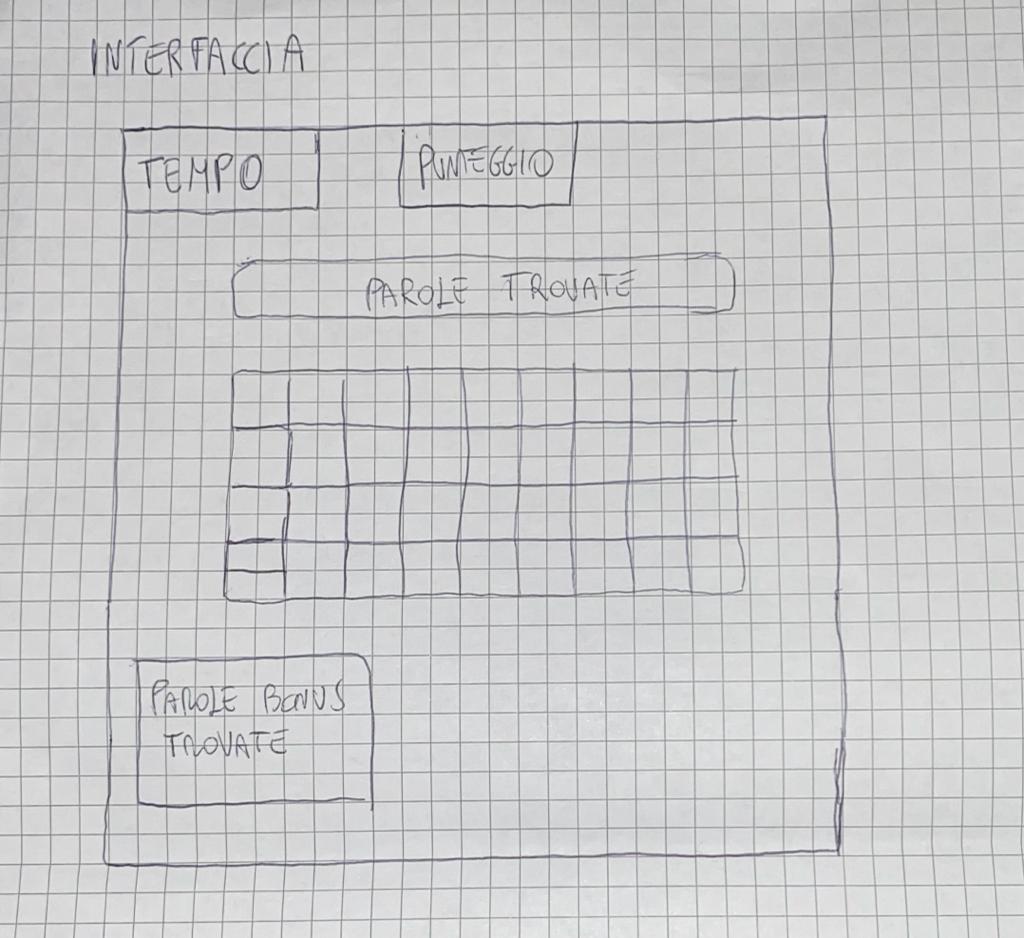 INTERFACCIA
TEMPO
PUNTEGGIO
PAROLE TROVATE
PAROLE BONUS
TROVATE